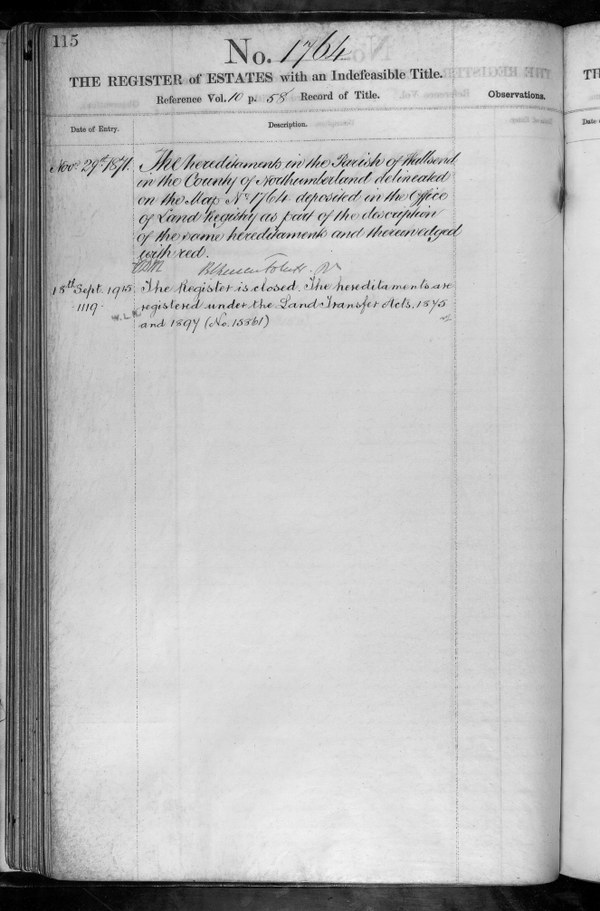 115
No. 1764
THE REGISTER of ESTATES with an Indefeasible Title.
Reference Vol. 10 p. 58 Record of Title.
Observations.
Date of Entry.
Description.
Novr 29th 1871. The hereditaments in the Parish of Wallsend
in the County of Northumberland delineated
on the Map No 1764 deposited in the Office
of Land Registry as part of the description
of the same hereditaments and therein edged
with red.
18th Sept. 1915 The Register is closed. The hereditaments are
1119 registered under the Land Transfer Acts, 1875
and 1897 (No. 15361)
TH
Date